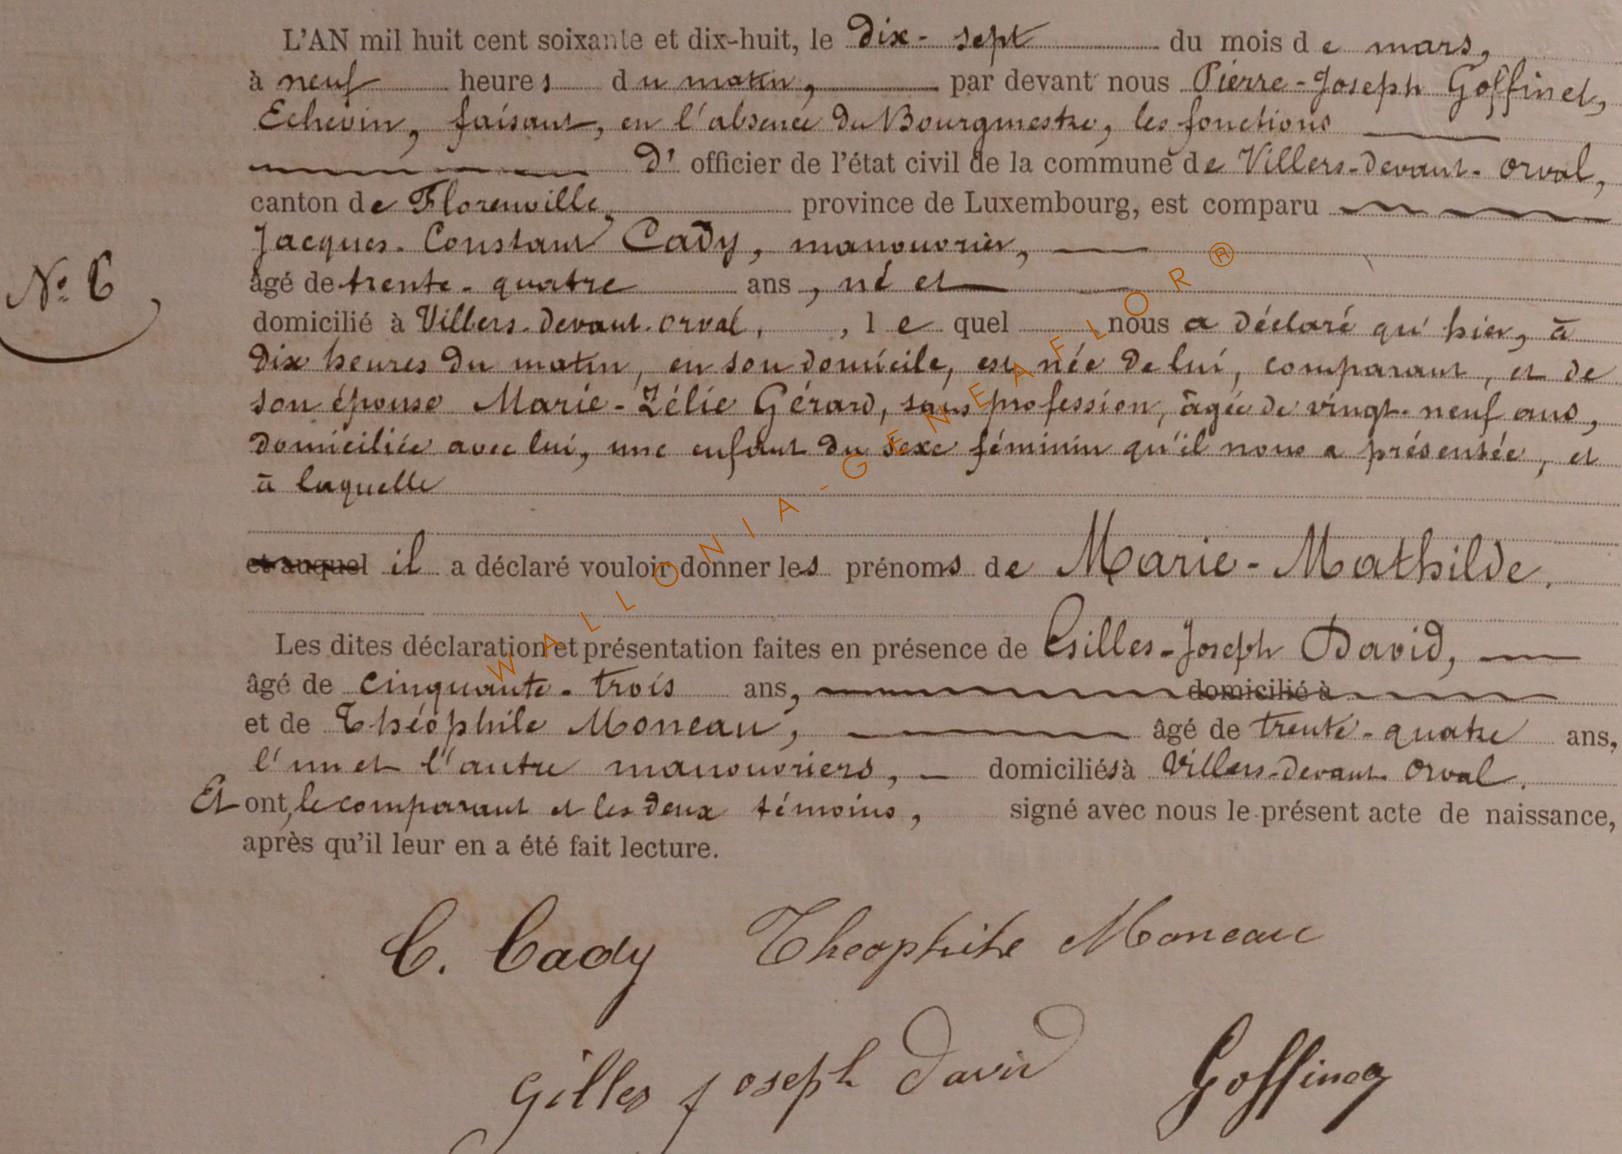 L'AN mil huit cent soixante et dix-huit, le dix-sept du mois de mars,
à neuf heures du matin, par devant nous Pierre-Joseph Goffinet,
Echevin, faisant, en l'absence du Bourgmestre, les fonctions
d' officier de l'état civil de la commune de Villers-devant-Orval,
canton de Florenville, province de Luxembourg, est comparu
Jacques-Constant Cady, manouvrier,
âgé de trente-quatre ans, né et
domicilié à Villers-devant-Orval, , lequel nous a déclaré qu'hier, à
dix heures du matin, en son domicile, est née de lui, comparant, et de
son épouse Marie-Zélie Gérard, sans profession, âgée de vingt-neuf ans,
domiciliée avec lui, une enfant du sexe féminin qu'il nous a présentée, et
à laquelle
et auquel il a déclaré vouloir donner les prénoms de Marie-Mathilde.
Les dites déclaration et présentation faites en présence de Gilles-Joseph David,
âgé de cinquante-trois ans, domicilié à
et de Théophile Moneau, âgé de trente-quatre ans,
l'un et l'autre manouvriers, domiciliés à Villers-devant-Orval.
Et ont, le comparant et les deux témoins, signé avec nous le présent acte de naissance,
après qu'il leur en a été fait lecture.
N° 6
C. Cady Theophile Moneau
gilles joseph david Goffinet
WALLONIA-GENEAFLOR®